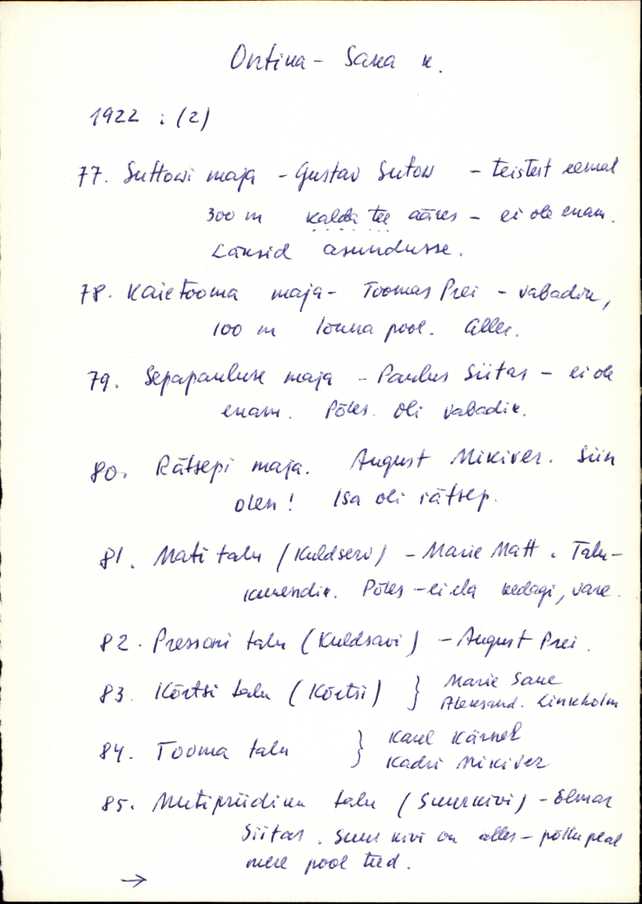 Ontika - Saka k.
1922 : (2)
77. Suttowi maja - Gustav Sutow - teistest eemal
300 m kalda tee ääres - ei ole enam.
Läksid asundusse.
78. Kaietooma maja - Toomas Prei - vabadik,
100 m lõuna pool. Alles.
79. Sepapauluse maja - Paulus Siitas - ei ole
enam. Põles. Oli vabadik.
80. Rätsepi maja. August Mikiver. Siin
olen! Isa oli rätsep.
81. Mati talu (Kuldserv) - Marie Matt. Talu-
Põles - ei ela kedagi, vare.
82. Pressoni talu (Kuldsavi) - August Prei.
83. Kõrtsi talu (Kõrtsi) } Marie Sane
Aleksand. Linkholm
84. Tooma talu } Karel Kärnek
Kadri Mikiver
85. Mutipriidiku talu (Suurkivi) - Elmar
Siitas. Suur kivi on alles - põllu peal
mere pool teed.
→